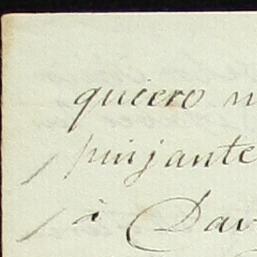 quiero
pinjante
à Dav